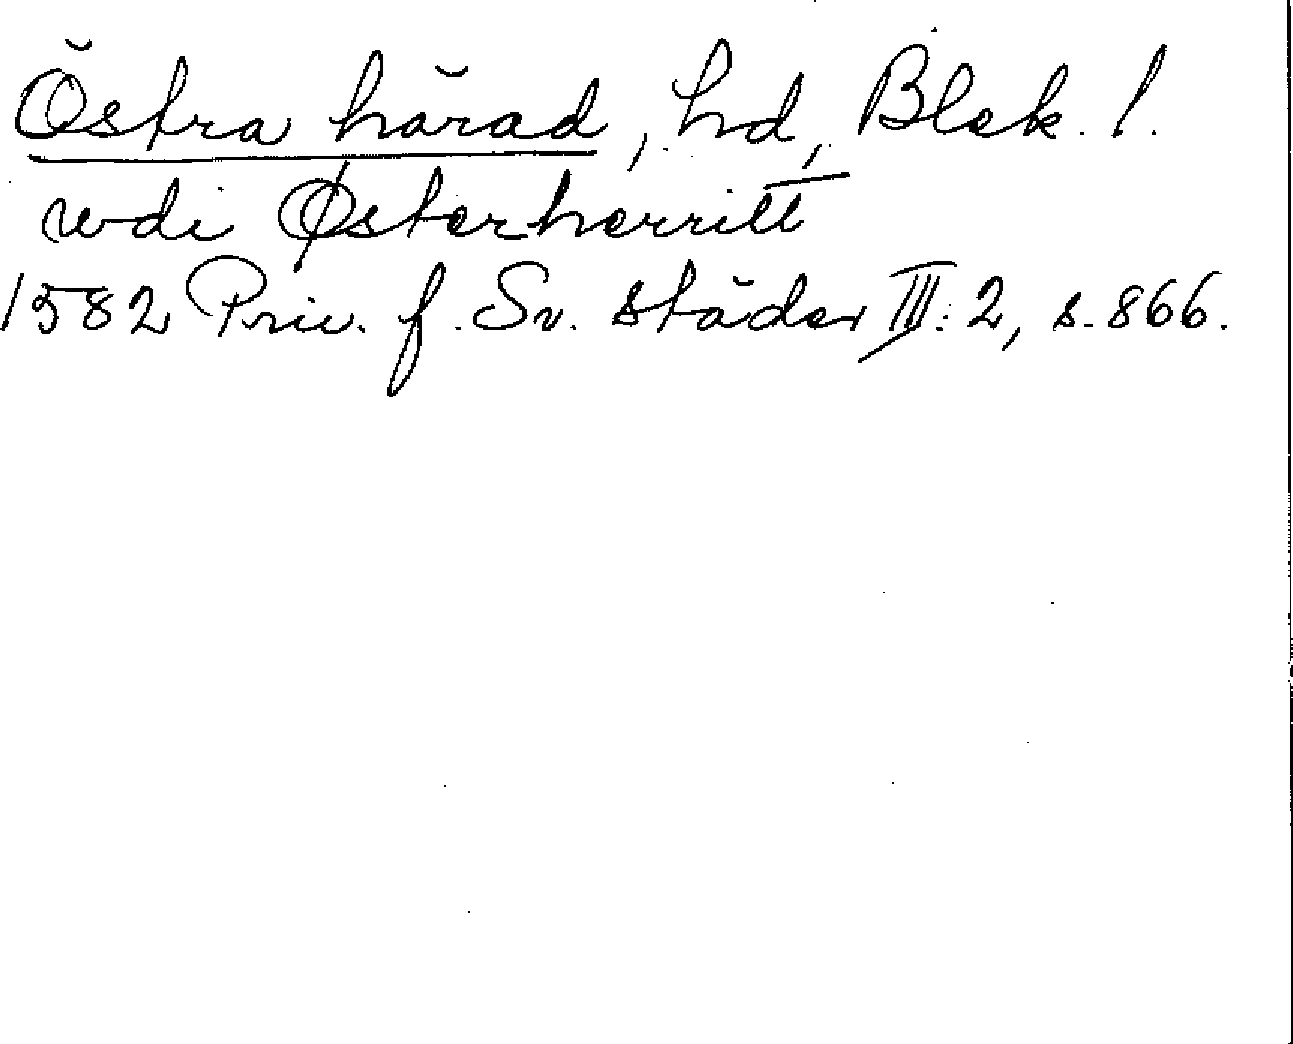 Östra härad, hd, Blek. l.
wdi Østerherritt
1582 Priv. f. Sv. städer III:2, s. 866.